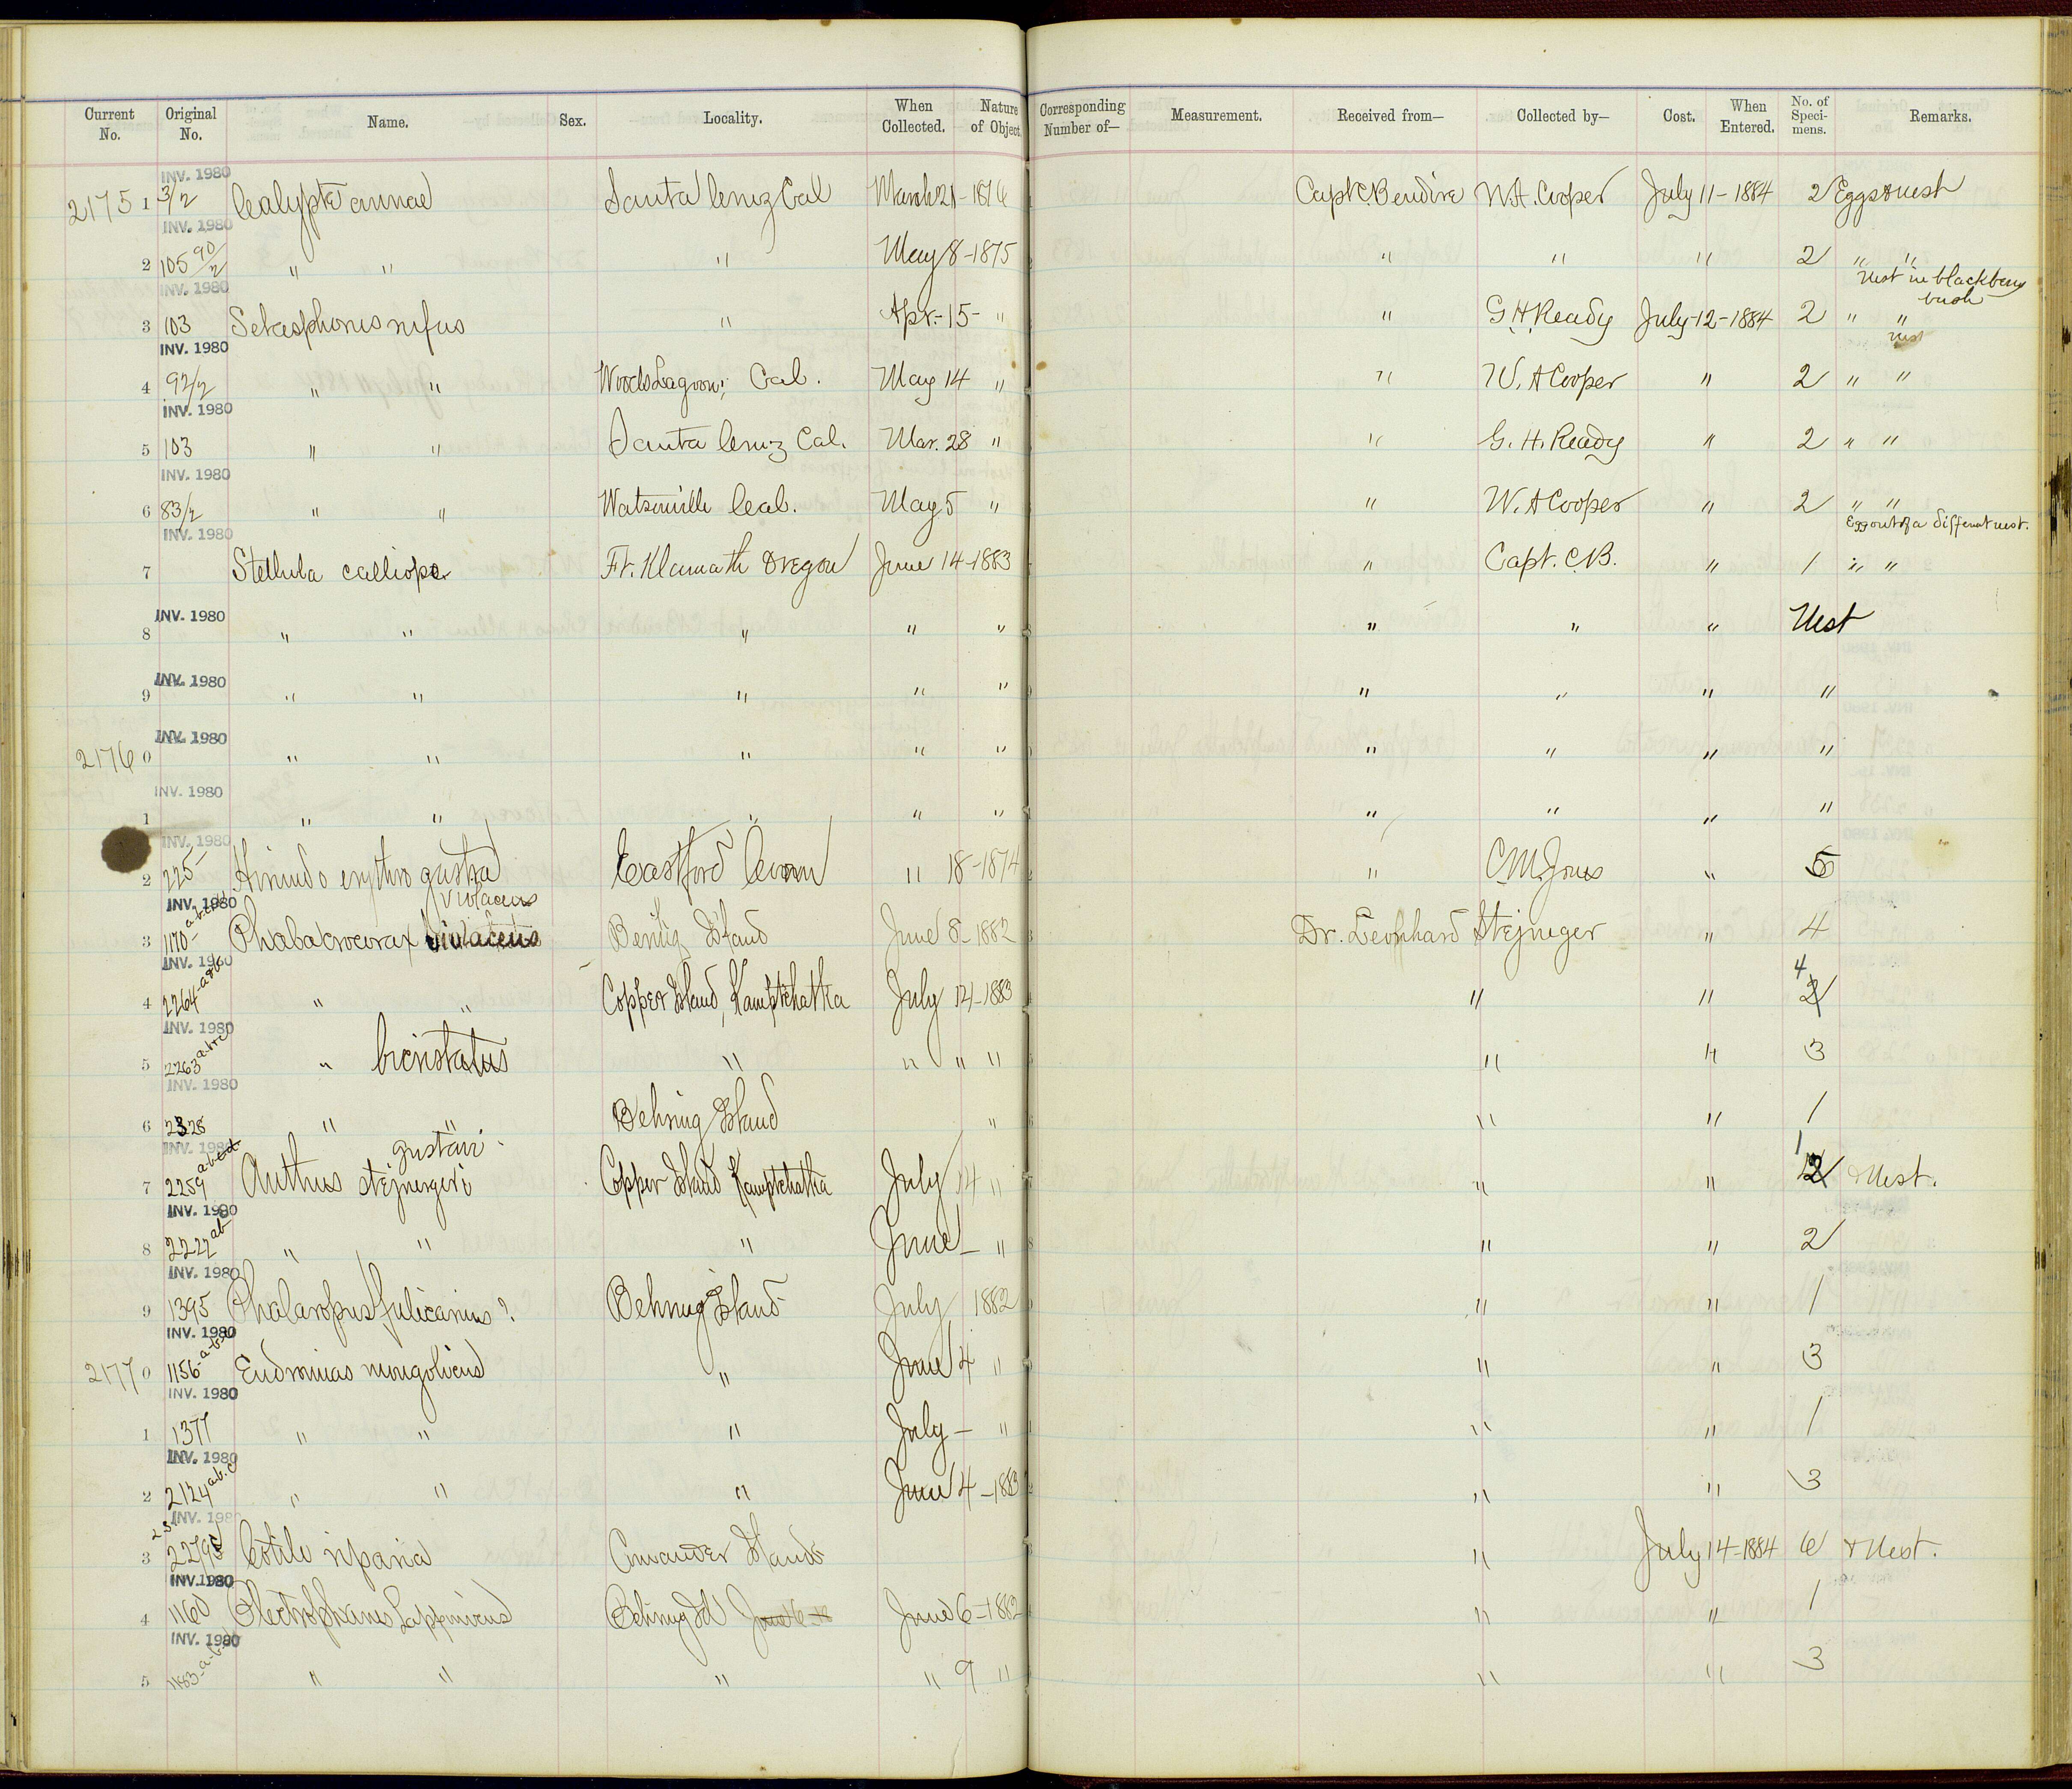 Current No. Original No. Name. Sex. Locality. When Collected. Nature of Object. Corresponding Number of— Measurement. Received from— Collected by— Cost. When Entered. No. of Specimens. Remarks.
INV. 1980
2175 1 3/2 Calypte annae Santa Cruz Cal March 21-1876 Capt C. Bendire W.A. Cooper July 11-1884 2 Eggs & nest
INV. 1980
2 105 90/2 " " " May 8-1875 " " " 2 " "
nest in blackberry bush
INV. 1980
3 103 Selasphorus rufus " Apr.-15- " " G H Ready July-12-1884 2 " "
nest
INV. 1980
4 92/2 " " Woods Lagoon, Cal. May 14 " " W. A Cooper " 2 " "
INV. 1980
5 103 " " Santa Cruz Cal. Mar. 28 " " G. H. Ready " 2 " "
INV. 1980
6 83/2 " " Watsonville Cal. May 5 " " W. A Cooper " 2 " "
Egg out of a different nest.
INV. 1980
7 Stellula calliope Ft. Klamath Oregon June 14-1883 " Capt. C.B. " 1 " "
INV. 1980
8 " " " " " " " " Nest
INV. 1980
9 " " " " " " " " "
INV. 1980
2176 0 " " " " " " " " "
INV. 1980
1 " " " " " " " " "
INV. 1980
2 225 Hirundo erythrogastra Eastford Conn " 18-1874 " C.M. Jones " 5
violaceus
INV. 1980
3 1170 a.b.c.d Phalacrocorax violaceus Bering Island June 8-1882 Dr. Leonhard Stejneger " 4
INV. 1980
4 2264 " " Copper Island, Kamptchatka July 14-1883 " " 4 2
INV. 1980
5 2263 a.b.c " bicristatus " " " " " " 3
INV. 1980
6 2328 " " Behring Island " " " 1
INV. 1980
gustavi
7 2259 a.b.c.d Anthus stejnegeri Copper Island Kamptchatka July 14 " " " 1 2 & Nest.
INV. 1980
8 2222 ab " " " June - " " " 2
INV. 1980
9 1395 Phalaropus fulicarius? Behring Island July 1882 " " 1
INV. 1980
2177 0 1156 a-b-c Eudromias mongolicus " June 4 " " " 3
INV. 1980
1 1377 " " " July - " " " 1
INV. 1980
2 2124 a.b.c " " " June 4-1883 " " 3
INV. 1980
3 Cotile riparia Comander Islands " July 14-1884 6 & Nest.
INV. 1980
4 1160 Plectrophanes Lapponicus Behring Isl June 6-1882 " " 1
INV. 1980
5 " " " " 9 " " " 3